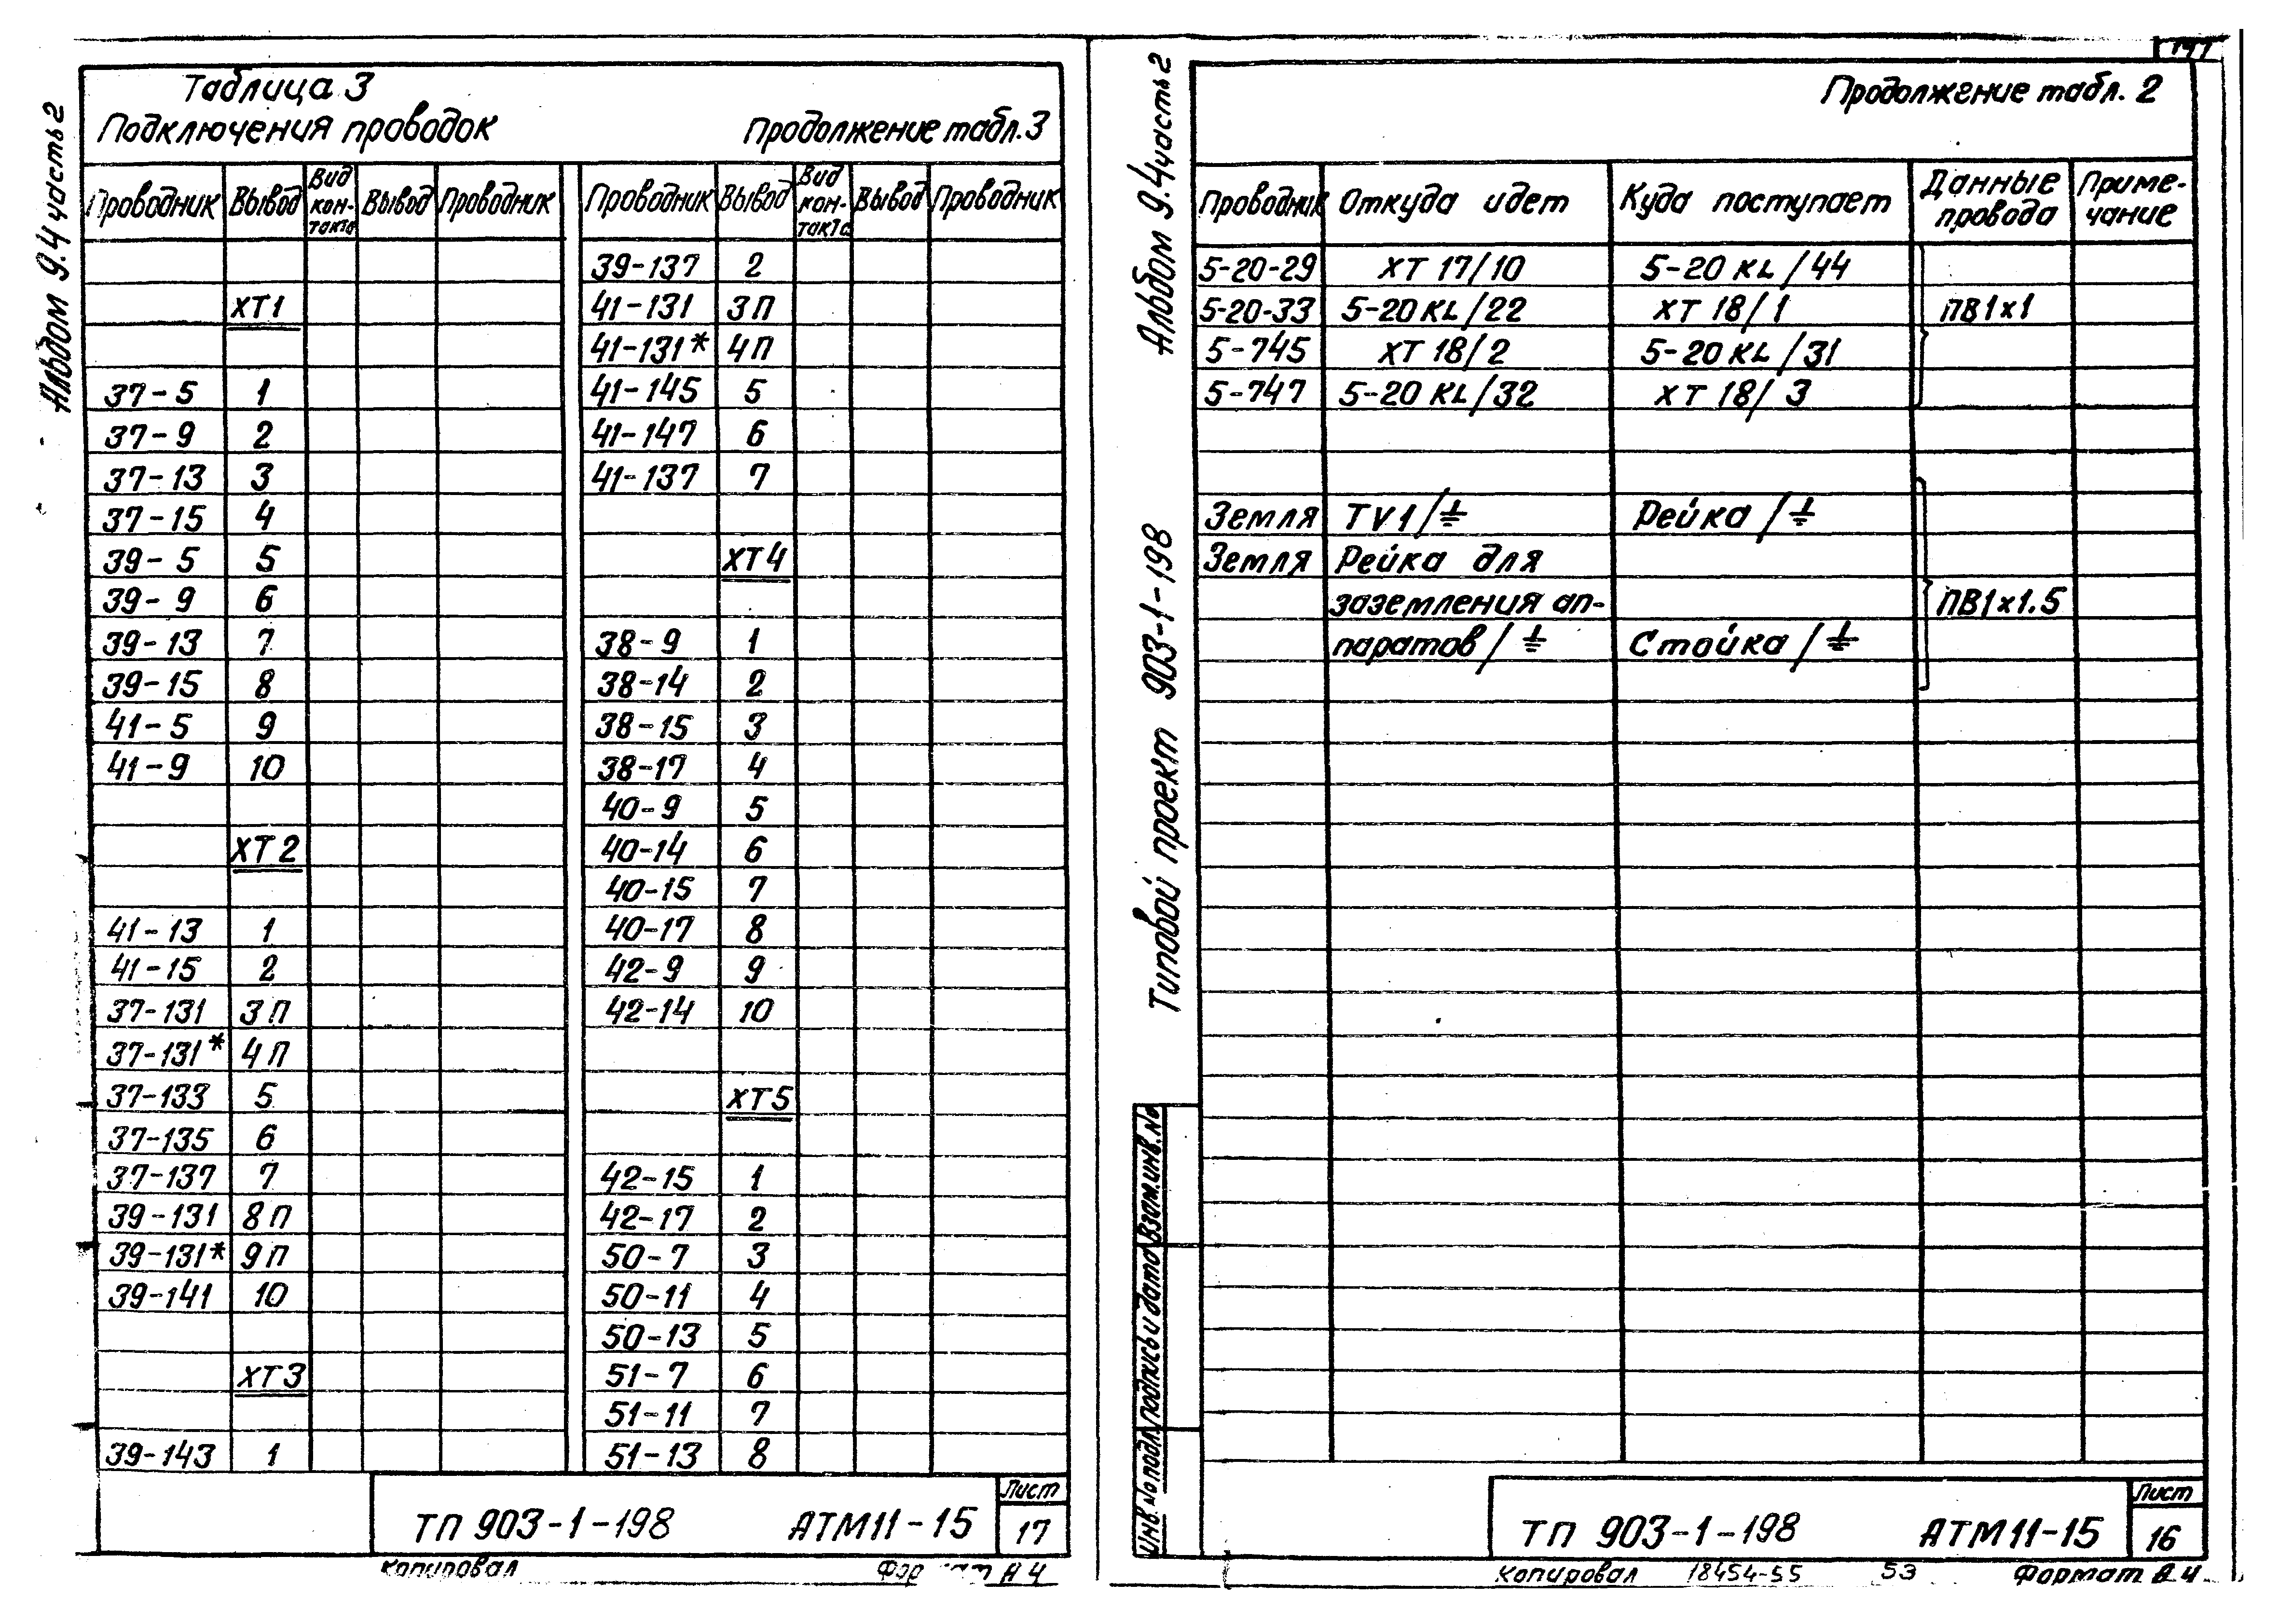 Альбом 9.4 часть 2
Таблица 3
Подключения проводок
Продолжение табл. 3
Проводник Вывод Вид кон-такта Вывод Проводник Проводник Вывод Вид кон-такта Вывод Проводник
XT1
37-5 1
37-9 2
37-13 3
37-15 4
39-5 5
39-9 6
39-13 7
39-15 8
41-5 9
41-9 10
XT2
41-13 1
41-15 2
37-131 3П
37-131* 4П
37-133 5
37-135 6
37-137 7
39-131 8П
39-131* 9П
39-141 10
XT3
39-143 1
39-137 2
41-131 3П
41-131* 4П
41-145 5
41-147 6
41-137 7
XT4
38-9 1
38-14 2
38-15 3
38-17 4
40-9 5
40-14 6
40-15 7
40-17 8
42-9 9
42-14 10
XT5
42-15 1
42-17 2
50-7 3
50-11 4
50-13 5
51-7 6
51-11 7
51-13 8
ТП 903-1-198 АТМ11-15
Лист
17
Копировал
А4
Альбом 9.4 часть 2
Типовой проект 903-1-198
Продолжение табл. 2
Проводник Откуда идет Куда поступает Данные провода Приме-чание
5-20-29 XT 17/10 5-20 KL/44
5-20-33 5-20 KL/22 XT 18/1 ПВ1х1
5-745 XT 18/2 5-20 KL/31
5-747 5-20 KL/32 XT 18/3
Земля TV1/⏚ Рейка/⏚
Земля Рейка для
заземления ап- ПВ1х1.5
паратов/⏚ Стойка/⏚
Инв. № подл. Подпись и дата Взам. инв. №
ТП 903-1-198 АТМ11-15
Лист
16
Копировал 18454-55 53 Формат А4